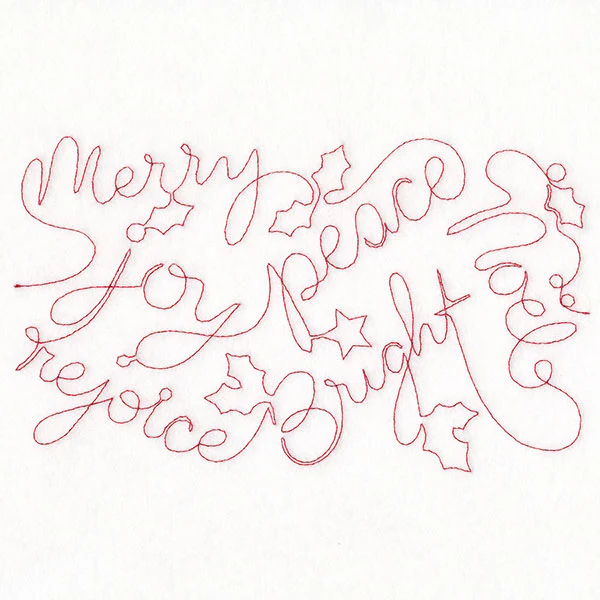 Merry
peace
Joy
Noel
rejoice
Bright